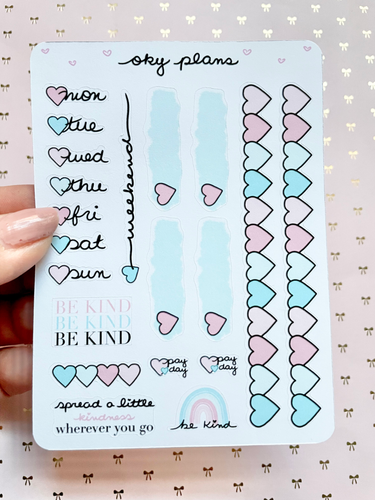 oky plans
mon
tue
wed
thu
fri
sat
sun
weekend
BE KIND
BE KIND
BE KIND
pay
day
pay
day
spread a little
kindness
wherever you go
be kind